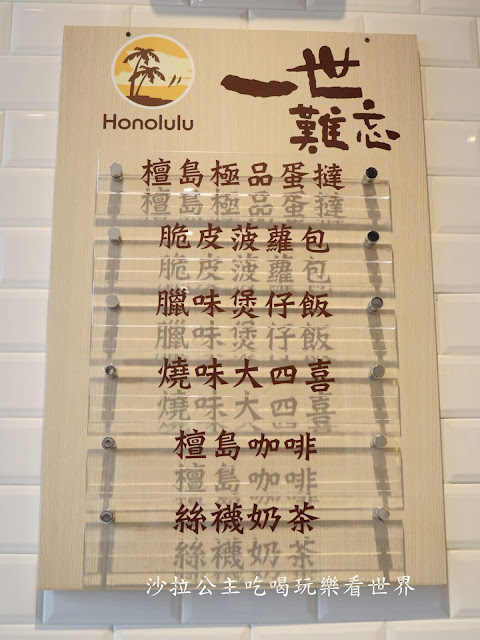 Honolulu
一世
難忘
檀島極品蛋撻
脆皮菠蘿包
臘味煲仔飯
燒味大四喜
檀島咖啡
絲襪奶茶
沙拉公主吃喝玩樂看世界